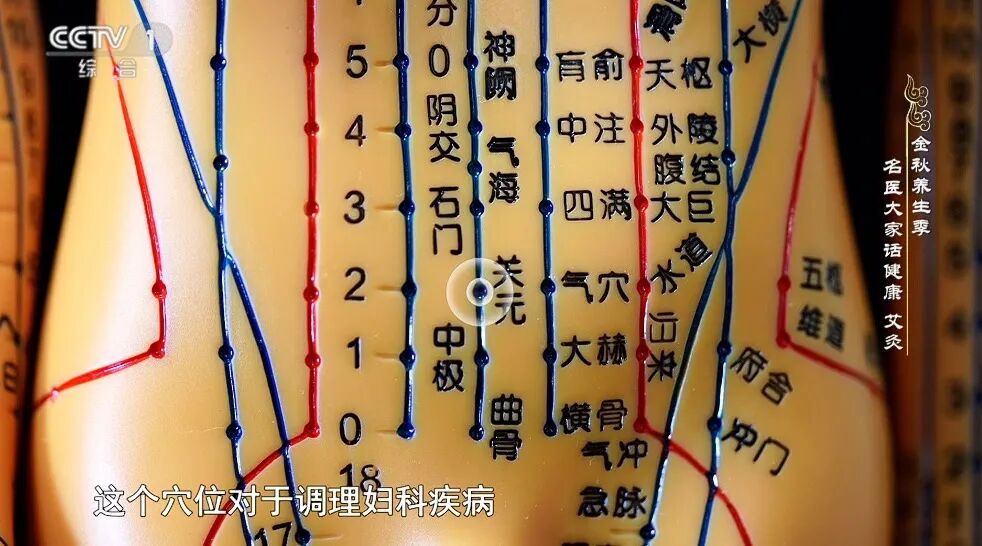 CCTV 1
综合
分
5
4
3
2
1
0
18
17
0
阴交
石门
中极
神阙
气海
关元
曲骨
肓俞
中注
四满
气穴
大赫
横骨
气冲
急脉
天枢
外陵
腹结
大巨
水道
大横
五枢
维道
府舍
冲门
金秋养生季
名医大家话健康 艾灸
这个穴位对于调理妇科疾病